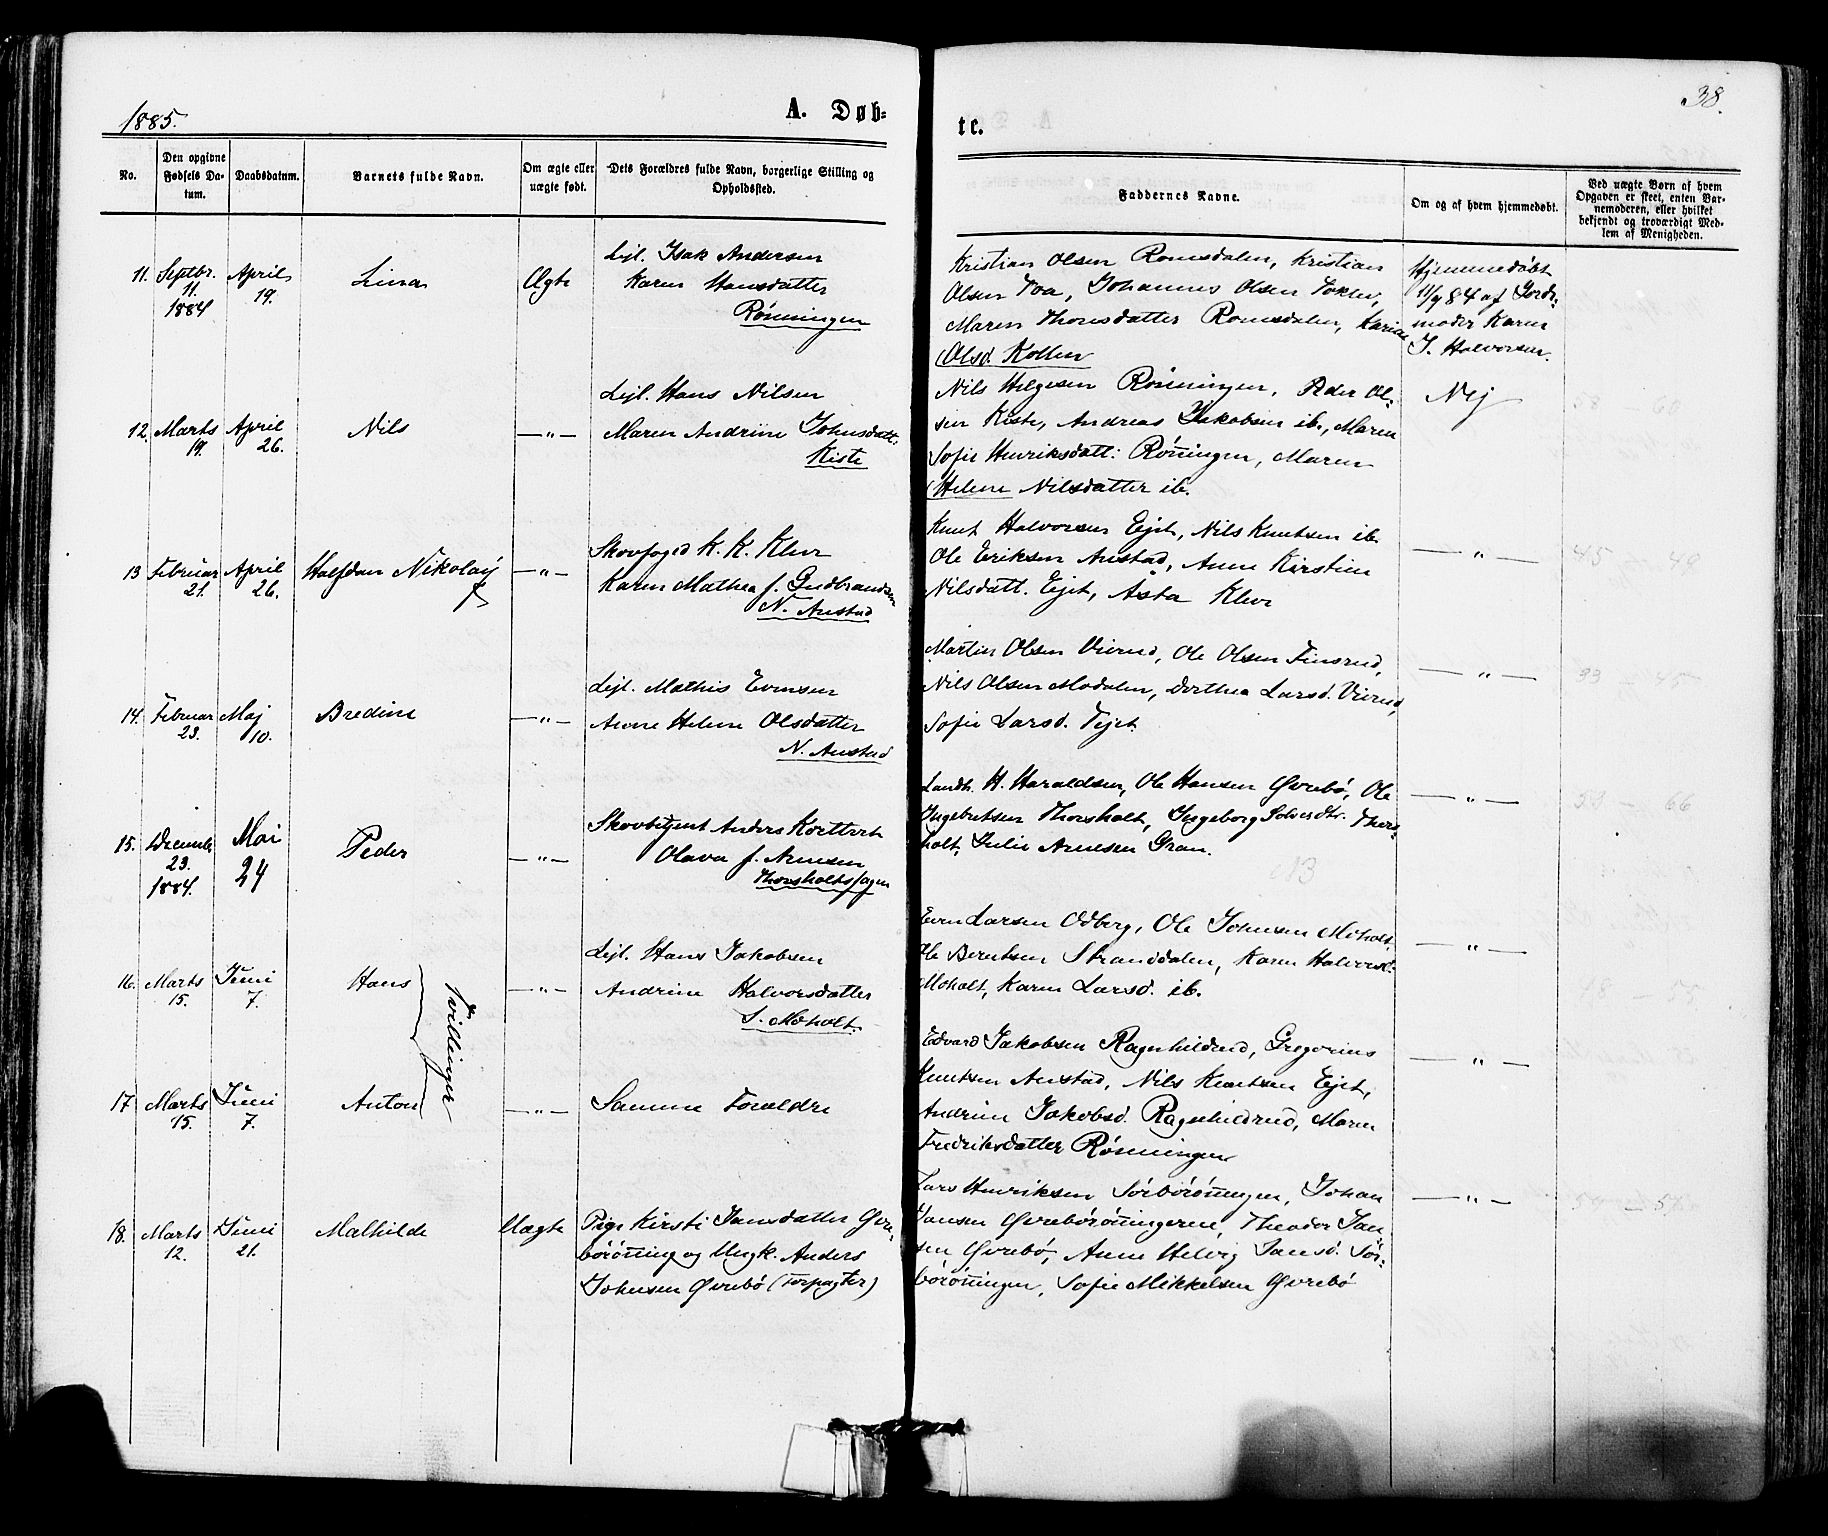 1885.
A. Døb=
tc.
38.
No.
Den opgivne Fødsels Da-tum.
Daabsdatum.
Barnets fulde Navn.
Om ægte eller uægte født.
Dets Forældres fulde Navn, borgerlige Stilling og Opholdssted.
Faddernes Navne.
Om og af hvem hjemmedøbt.
Ved uægte Børn af hvem Opgaven er skeet, enten Bar-nemoderen, eller hvilket bekjendt og troværdigt Med-lem af Menigheden.
11. Septbr. 11. 1884
April 19.
Lina
Ægte
Lejl. Isak Andersen
Karen Hansdatter
Rønningen
Kristian Olsen Romsdalen, Kristian
Olsen Moa, Johannes Olsen
Maren Thomsdatter Romsdalen, Karine
Olsd. Kollen
Hjemmedøbt
11/9 84 af Jorde-
moder Karen
J. Halvorsen.
12. Marts 19.
April 26.
Nils
—"—
Lejl. Hans Nilsen
Maren Andrine Johnsdatt.
Kiste
Nils Helgesen Rønningen, Peder Ol-
sen Kiste, Andreas Jakobsen ib., Maren
Sofie Henriksdatt: Rønningen, Maren
Helene Nilsdatter ib.
Nej
13 Februar 21.
April 26.
Halfdan Nikolaij
—"—
Skovfoged K. K. Klev
Karen Mathea f. Gudbrandsen
N. Austad
Knut Halvorsen Ejet, Nils Knutsen ib.
Ole Eriksen Austad, Anne Kirstine
Nilsdatt. Ejet, Asta Klev
—"—
45 49
14. Februar 23.
Maj 10.
Bredine
—"—
Lejl. Mathis Evensen
Anne Helene Olsdatter
N. Austad
Martin Olsen Vierud, Ole Olsen Finsrud,
Nils Olsen Modalen, Dorthea Larsd. Vierud,
Sofie Larsd. Ejet.
—"—
15. Decembr 23. 1884.
Mai 24
Peder
—"—
Skovbetjent Anders
Olava f. Arnesen
Thorsholtshagen
Landh. H. Haraldsen, Ole Hansen Øvrebø, Ole
Ingebretsen Thorsholt, Ingeborg Thors-
holt, Julie Arnesen Gran.
NB
—"—
66
16. Marts 15.
Juni 7.
Hans
Tvillinger
—"—
Lejl. Hans Jakobsen
Andrine Halvorsdatter
S. Moholt.
Even Larsen Odberg, Ole Johnsen Moholt,
Ole Berntsen Stranddalen, Karen Halvorsd.
Moholt, Karen Larsd. ib.
—"—
17. Marts 15.
Juni 7.
Anton
—"—
Samme Forældre
Edvard Jakobsen Ragnhildrud, Gregorius
Knutsen Austad, Nils Knutsen Ejet,
Andrine Jakobsd. Ragnhildrud, Maren
Fredriksdatter Rønningen
—"—
18. Marts 12.
Juni 21.
Mathilde
Uægte
Pige Kirsti Jansdatter Øvre-
børønning og Ungk. Anders
Johnsen Øvrebø (Forpagter)
Lars Henriksen Sørbørønningen, Johan
Jansen Øvrebørønningerne, Theodor Jan-
sen Øvrebø, Anne Helvig Jansd. Sør-
børønningen, Sofie Mikkelsen Øvrebø
—"—